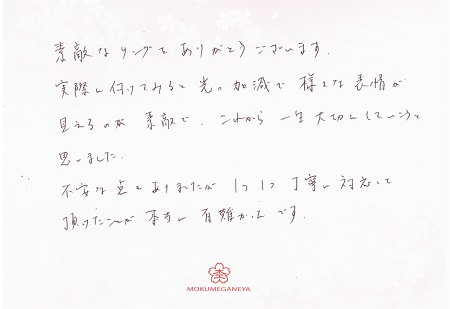 素敵なリングをありがとうございます。
実際に付けてみると光の加減で様々な表情が
見えるのが素敵で、これから一生大切にしていこうと
思いました。
不安な点もありましたが1つ1つ丁寧に対応して
頂けたことが本当に有難かったです。
MOKUMEGANEYA